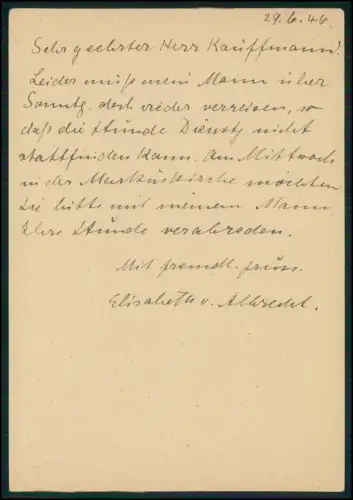 29.6.46.
Sehr geehrter Herr Kauffmann!
Leider muß mein Mann über
Sonntg. doch wieder verreisen, so
daß die Stunde Dienstg nicht
stattfinden kann. Am Mittwoch
in der Markuskirche möchten
Sie bitte mit meinem Mann
Ihre Stunde verabreden.
Mit freundl. Grüss.
Elisabeth v. Albrecht.